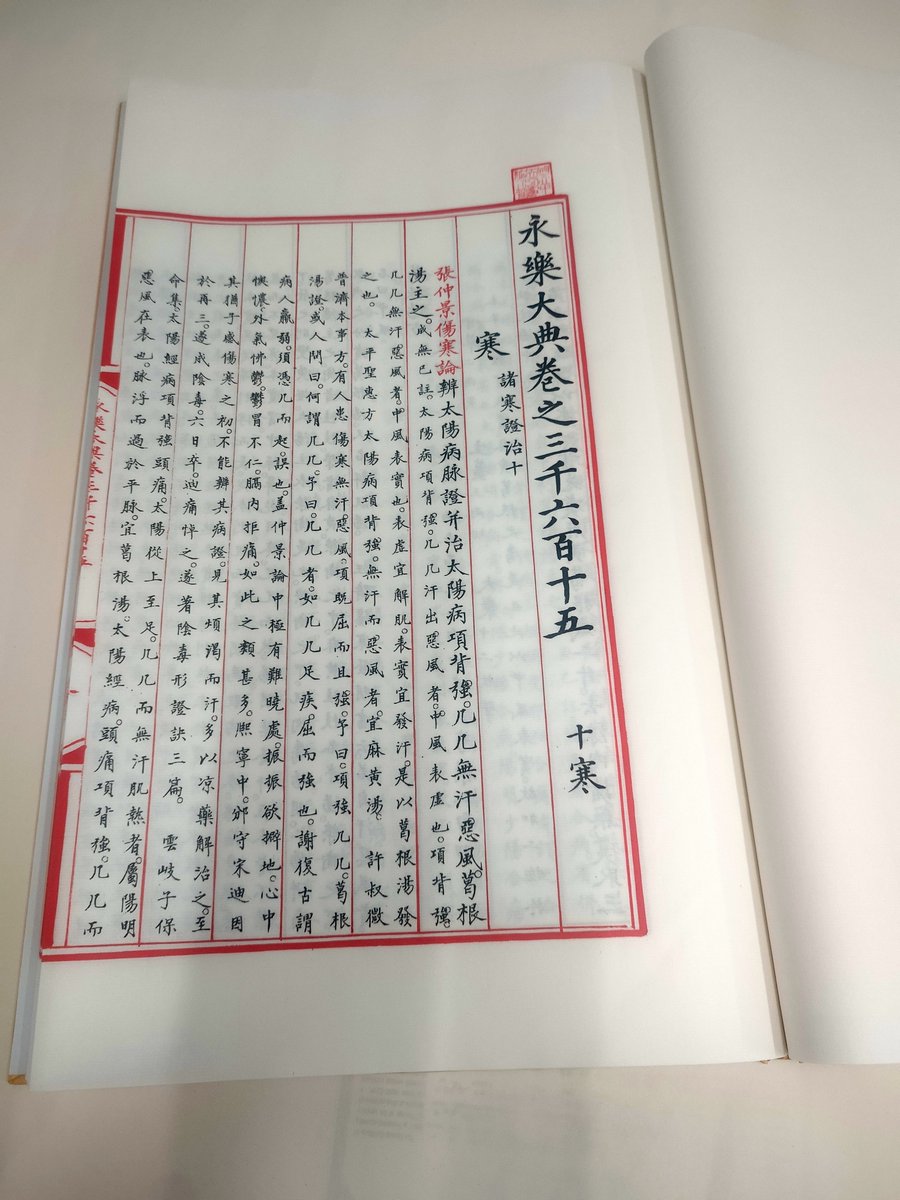 永樂大典卷之三千六百十五　十寒
寒　諸寒證治十
張仲景傷寒論辨太陽病脉證并治太陽病項背強。几几無汗惡風。葛根
湯主之。成無已註。太陽病項背強。几几汗出惡風者。中風表虛也。項背強。
几几無汗惡風者。中風表實也。表虛宜解肌。表實宜發汗。是以葛根湯發
之也。　太平聖惠方太陽病項背強。無汗而惡風者。宜麻黃湯。　許叔微
普濟本事方。有人患傷寒無汗。惡風。項旣屈而且強。予曰。項強几几。葛根
湯證。或人問曰。何謂几几。予曰。几几者。如几几足疾。屈而強也。謝復古謂
病人羸弱。須憑几而起。誤也。盖仲景論中極有難曉處。振振欲擗地。心中
懊憹。外氣怫鬱。鬱冒不仁。膈內拒痛。如此之類甚多。熙寧中。邠守宋迪因
其猶子感傷寒之初。不能辨其病證。見其煩渴而汗。多以凉藥解治之。至
於再三。遂成陰毒。六日卒。迪痛悼之。遂著陰毒形證訣三篇。　雲岐子保
命集。太陽經病項背強頭痛。太陽從上至足。几几而無汗肌熱者。屬陽明
惡風在表也。脉浮而過於平脉。宜葛根湯。太陽經病。頭痛項背強。几几而
永樂大典卷三千六百十五